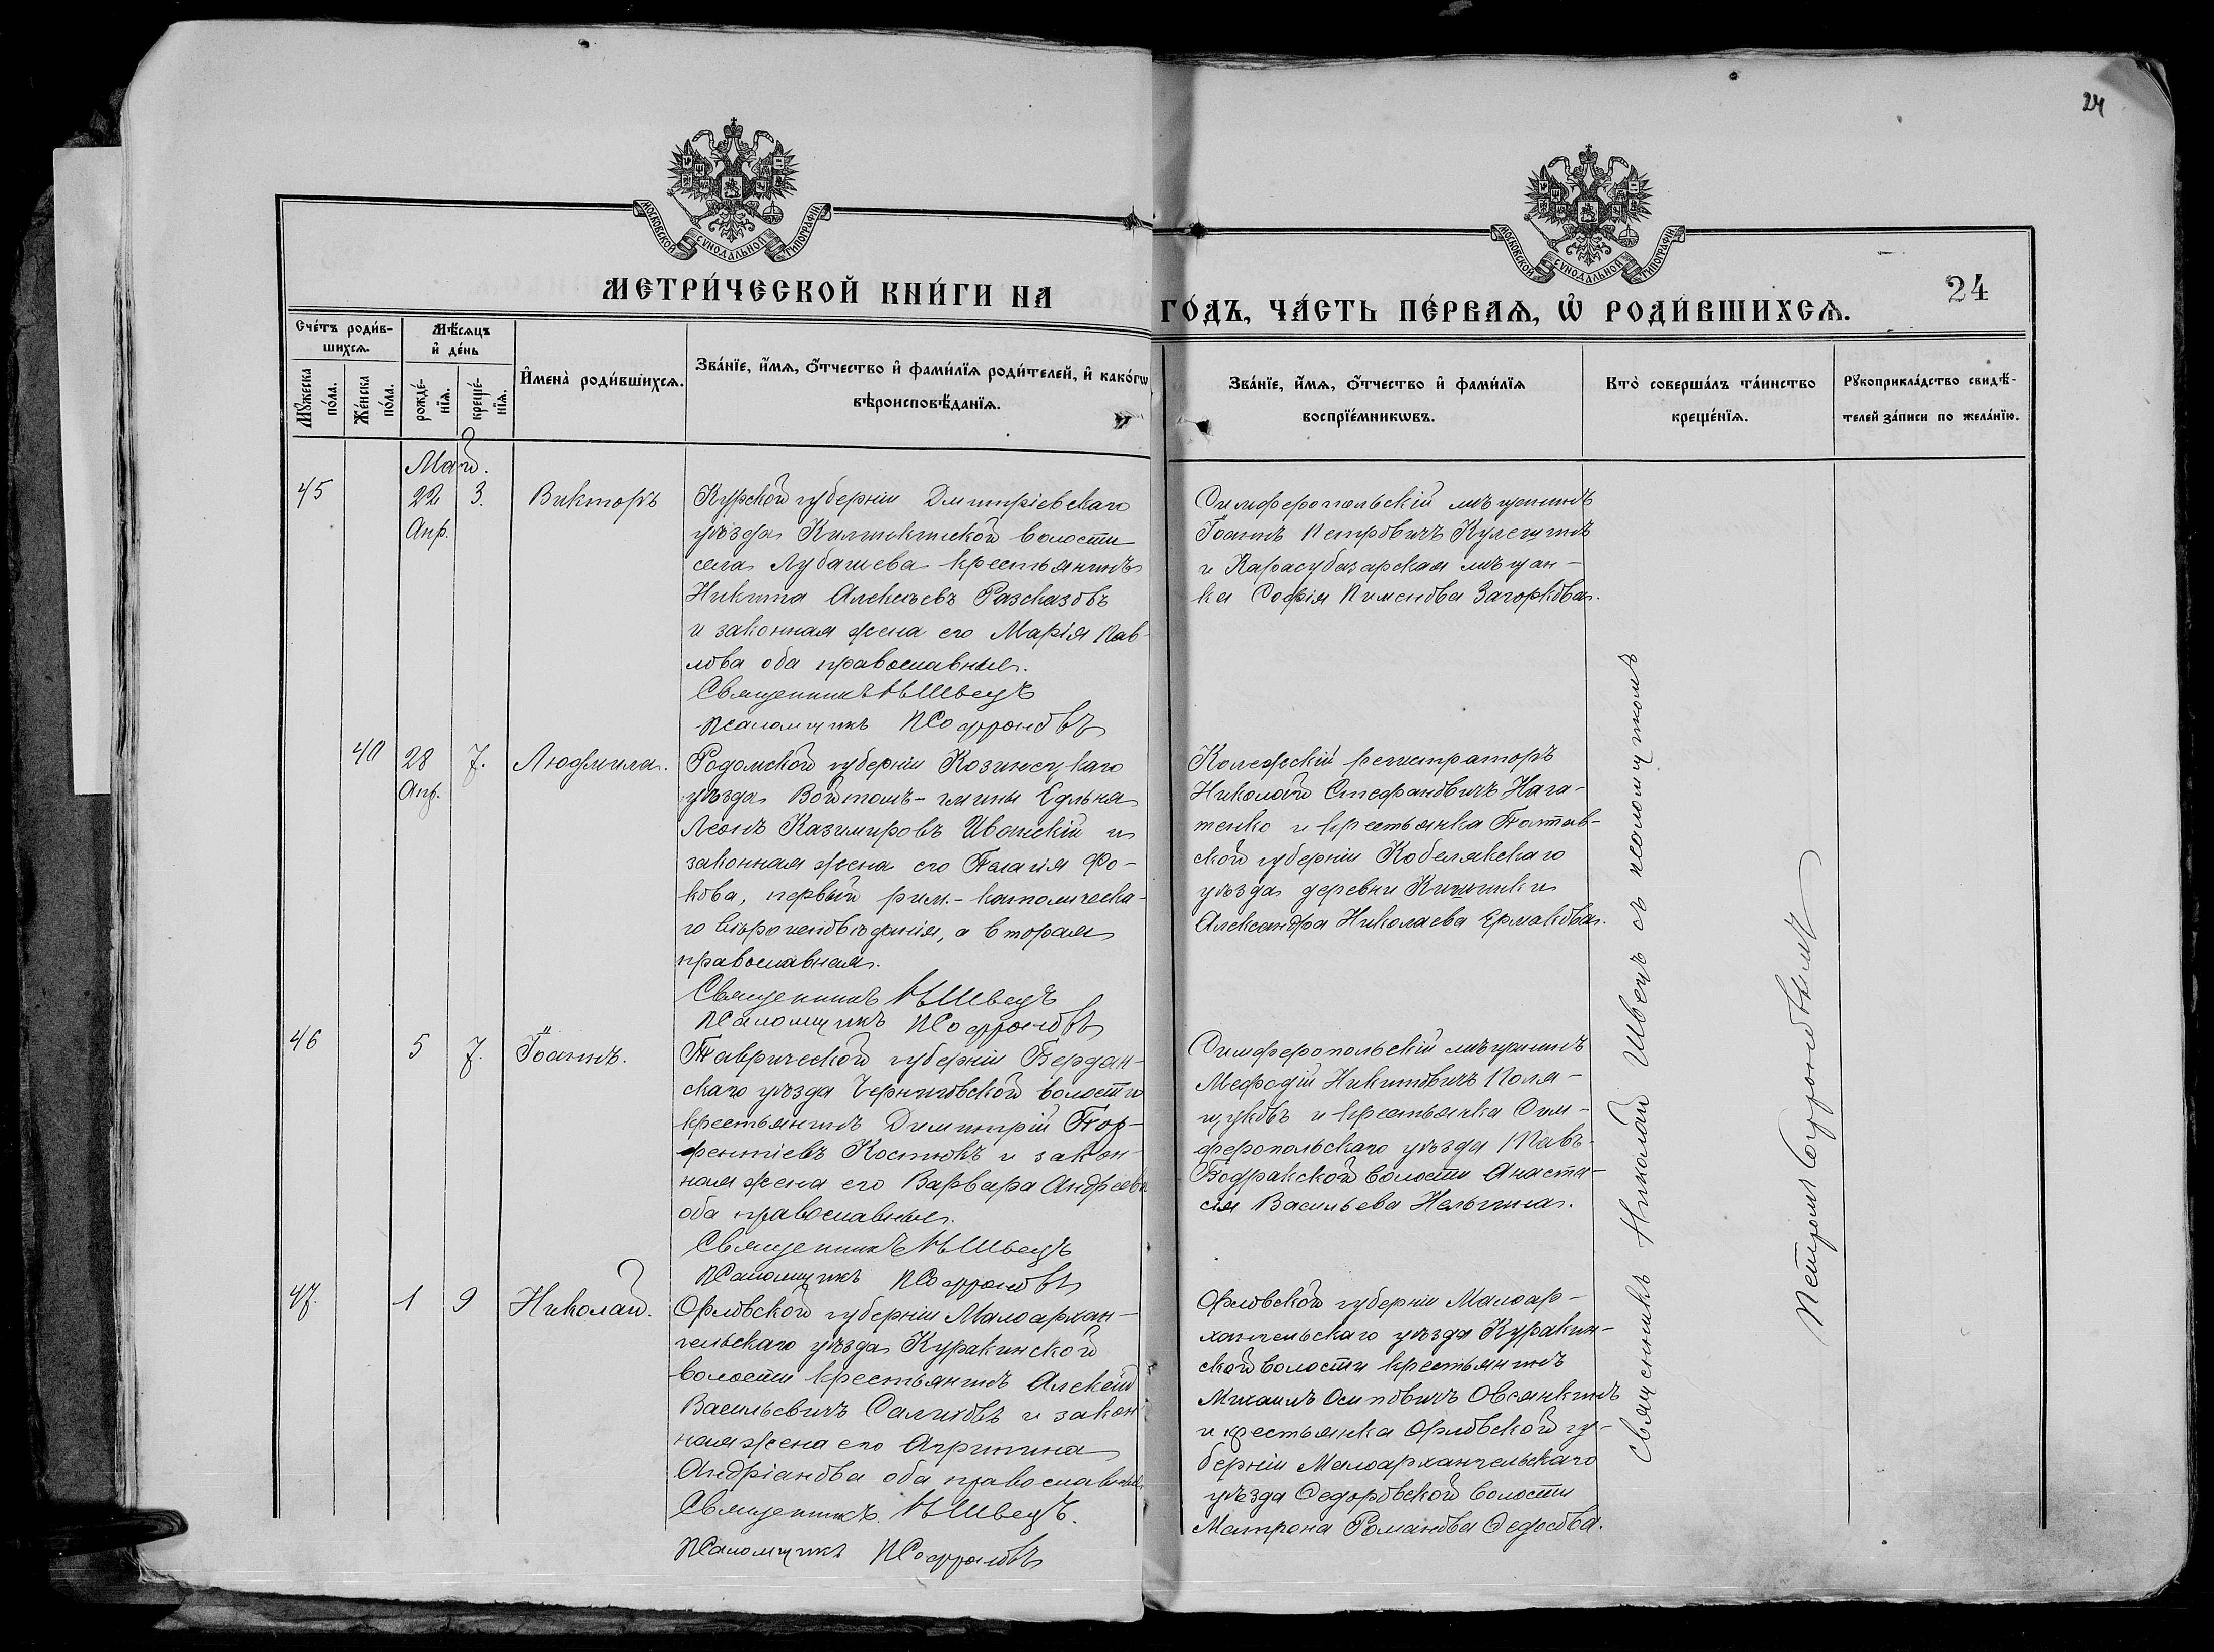 24
МОСКОВСКОЙ СУНОДАЛЬНОЙ ТИПОГРАФІИ
МОСКОВСКОЙ СУНОДАЛЬНОЙ ТИПОГРАФІИ
МЕТРИ́ЧЕСКОЙ КНИ́ГИ НА
ГО́ДЪ, ЧА́СТЬ ПЕ́РВАѦ, Ѡ҆ РОДИ́ВШИХСѦ.
24
Сче́тъ роди́в-
шихсѧ.
Мꙋ́жеска по́ла.
Же́нска по́ла.
Мѣ́сѧцъ
и҆ де́нь
рожде́-
нїѧ.
креще́-
нїѧ.
И҆мена̀ роди́вшихсѧ.
Зва́нїе, и҆́мѧ, ѻ҆́тчество и҆ фами́лїѧ роди́телей, и҆ како́гѡ
вѣроисповѣ́данїѧ.
Зва́нїе, и҆́мѧ, ѻ҆́тчество и҆ фами́лїѧ
воспрїе́мникѡвъ.
Кто̀ соверша́лъ та́инство
креще́нїѧ.
Рꙋкоприкла́дство свидѣ́-
телей за́писи по жела́нїю.
Май.
45
22 3.
Апр.
Викторъ
Курской губерніи Дмитріевскаго
уѣзда волости
села Лубашева крестьянинъ
Никита Алексѣевъ Разсказовъ
и законная жена его Марія Пав-
лова оба православные.
Священникъ Н Швецъ
Псаломщикъ П Софроновъ
Симферопольскій мѣщанинъ
Іоаннъ Петровичъ Кулешинъ
и Карасубазарская мѣщан-
ка Софія Пименова Загоркова.
40
28 7.
Апр.
Людмила.
Родомской губерніи Козинецкаго
уѣзда Войтомъ-гмины Едльня
Леонъ Казимировъ Иванскій и
законная жена его Пелагія Фо-
кова, первый рим.-католическа-
го вѣроисповѣданія, а вторая
православная.
Священникъ Н Швецъ
Псаломщикъ П Софроновъ
Колежскій регистраторъ
Николай Стефановичъ Нага-
тенко и крестьянка Полтав-
ской губерніи Кобелякскаго
уѣзда деревни Кишиньки
Александра Николаева Ермакова.
46
5 7.
Іоаннъ.
Таврической губерніи Бердян-
скаго уѣзда Черниговской волости
крестьянинъ Димитрій Пор-
фентіевъ Костювъ и закон-
ная жена его Варвара Андреева
оба православные.
Священникъ Н Швецъ
Псаломщикъ П Софроновъ
Симферопольскій мѣщанинъ
Мефодій Никитовичъ Поля-
щуковъ и крестьянка Сим-
феропольскаго уѣзда Тавъ-
Бодракской волости Анаста-
сія Васильева Нельгина.
47.
1 9
Николай.
Орловской губерніи Малоархан-
гельскаго уѣзда Куракинской
волости крестьянинъ Алексѣй
Васильевичъ Салиховъ и закон
ная жена его Агрипина
Андріанова оба православные.
Священникъ Н Швецъ.
Псаломщикъ П Софроновъ
Орловской губерніи Малоар-
хангельскаго уѣзда Куракин-
ской волости крестьянинъ
Михаилъ Осиповичъ Овсянкинъ
и крестьянка Орловской гу-
берніи Малоархангельскаго
уѣзда Ѳедоровской волости
Матрона Романова Ѳедосова.
Священникъ Николай Швецъ съ псаломщикомъ
Петромъ Софроновымъ